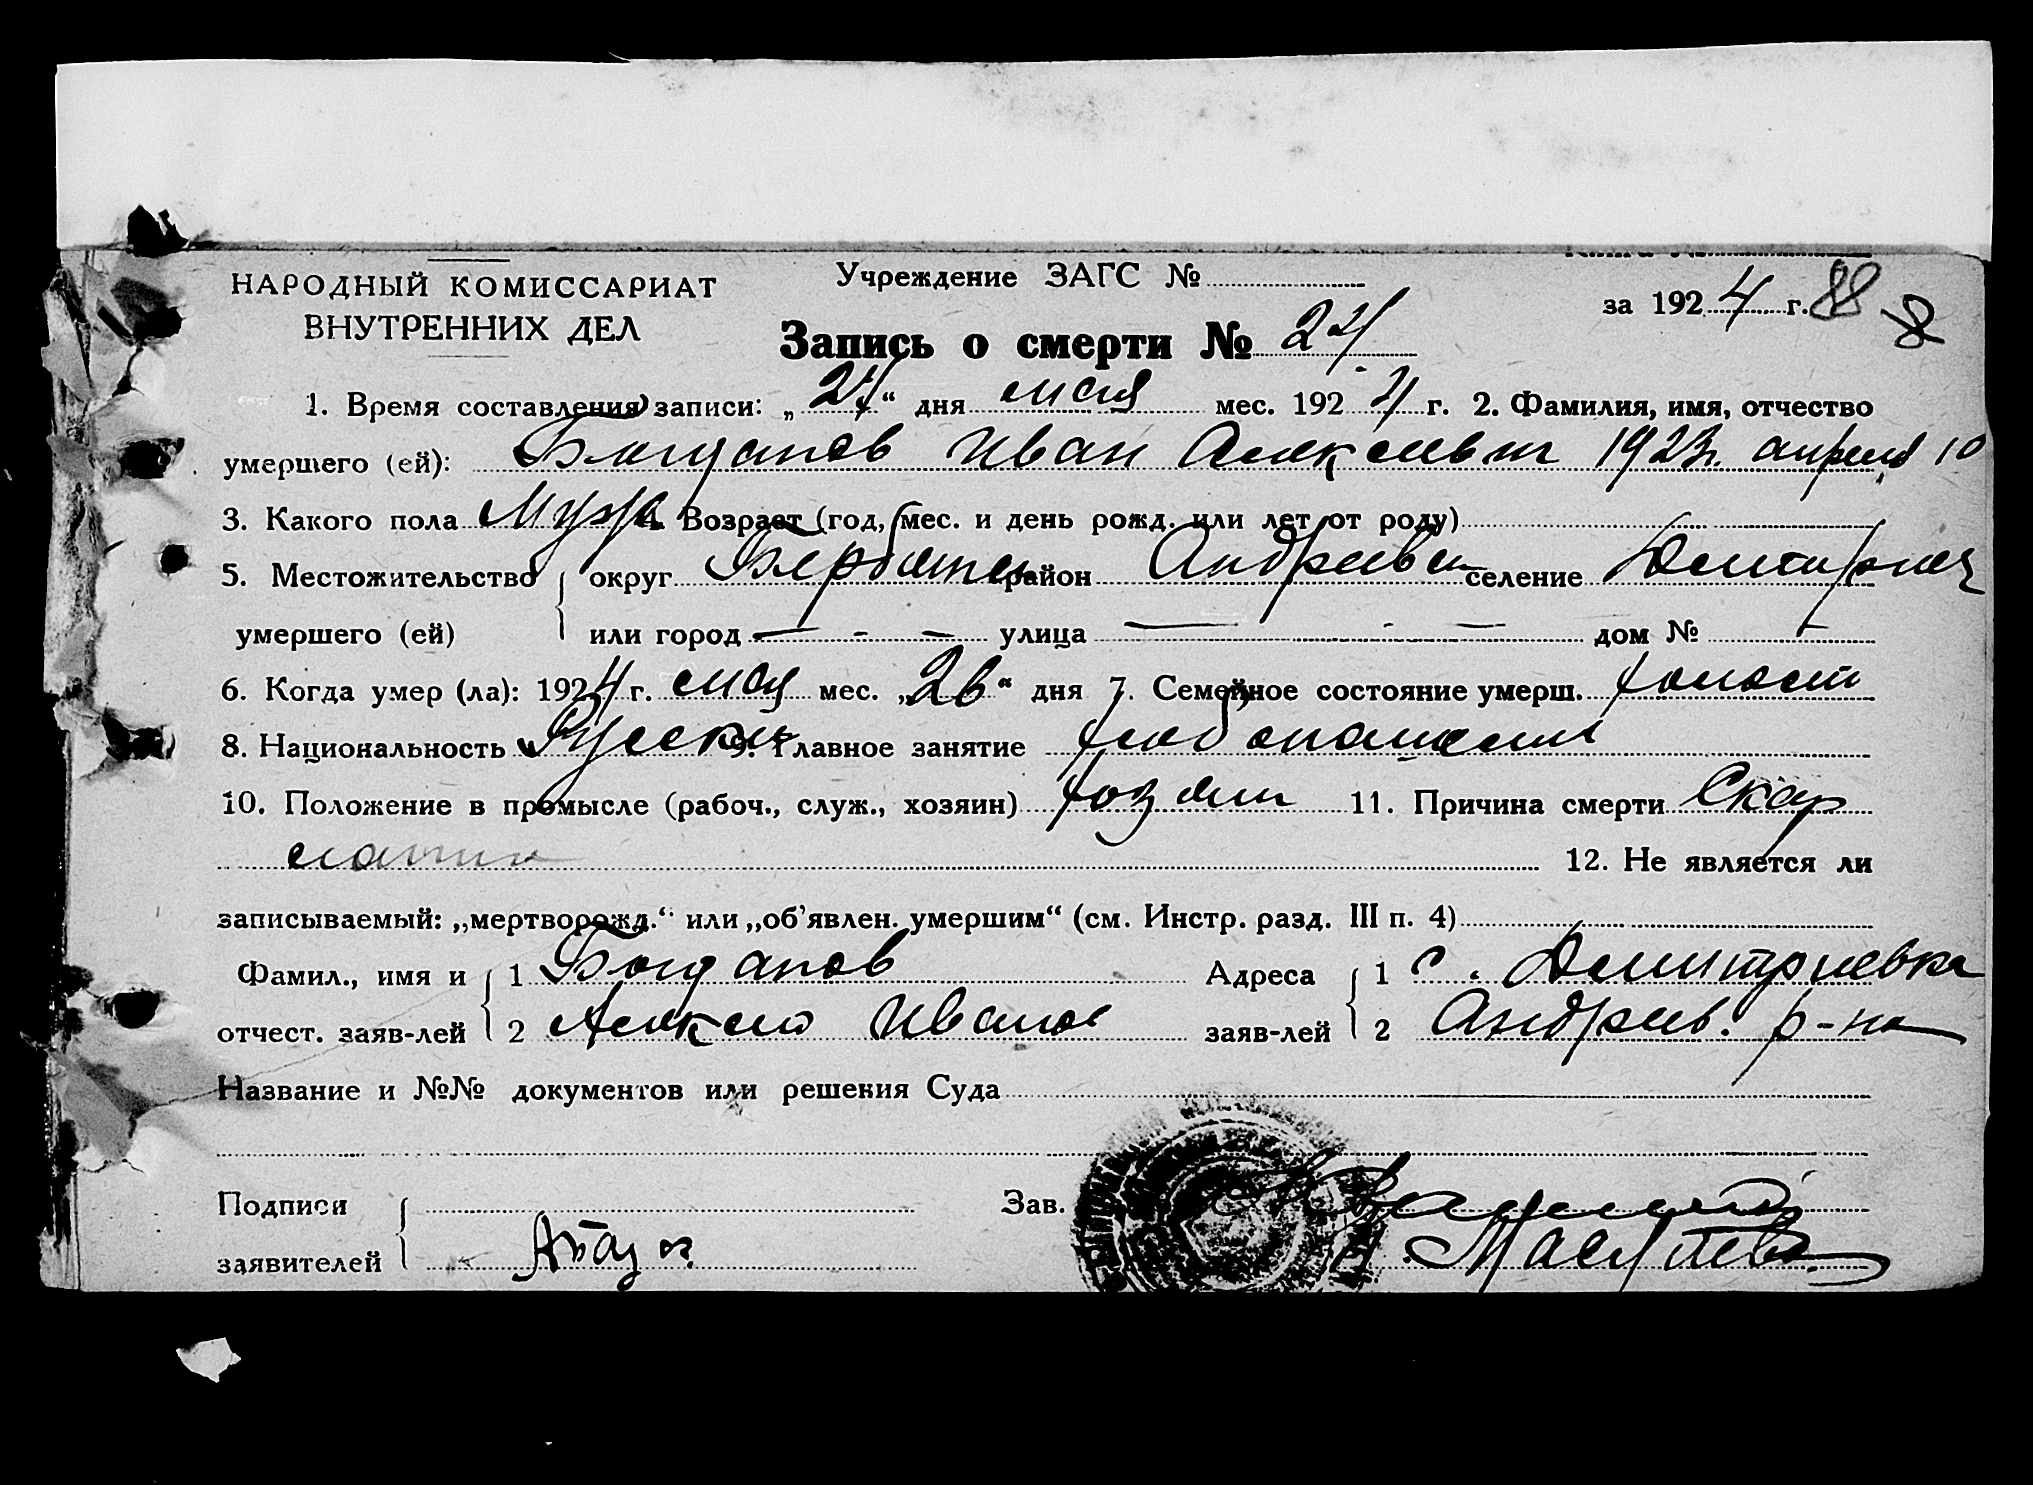 НАРОДНЫЙ КОМИССАРИАТ
ВНУТРЕННИХ ДЕЛ
Учреждение ЗАГС №
за 1924 г. 88
Запись о смерти № 24
1. Время составления записи: „24“ дня мая мес. 1924 г. 2. Фамилия, имя, отчество
умершего (ей): Богданов Иван Алексеевич 1923 г. апреля 10
3. Какого пола Муж 4. Возраст (год, мес. и день рожд. или лет от роду)
5. Местожительство округ район Андреевск селение
умершего (ей) или город — - — улица — - — дом № —
6. Когда умер (ла): 1924 г. мая мес. „ “ дня 7. Семейное состояние умерш. холост
8. Национальность Русский 9. Главное занятие хлебопашест
10. Положение в промысле (рабоч., служ., хозяин) хозяин 11. Причина смерти Скар
латина 12. Не является ли
записываемый: „мертворожд.“ или „об'явлен. умершим“ (см. Инстр. разд. III п. 4)
Фамил., имя и 1 Богданов Адреса 1 с. Дмитриевка
отчест. заяв-лей 2 Алексей Иванов заяв-лей 2 Андреев. р-на
Название и №№ документов или решения Суда
Подписи Зав.
заявителей